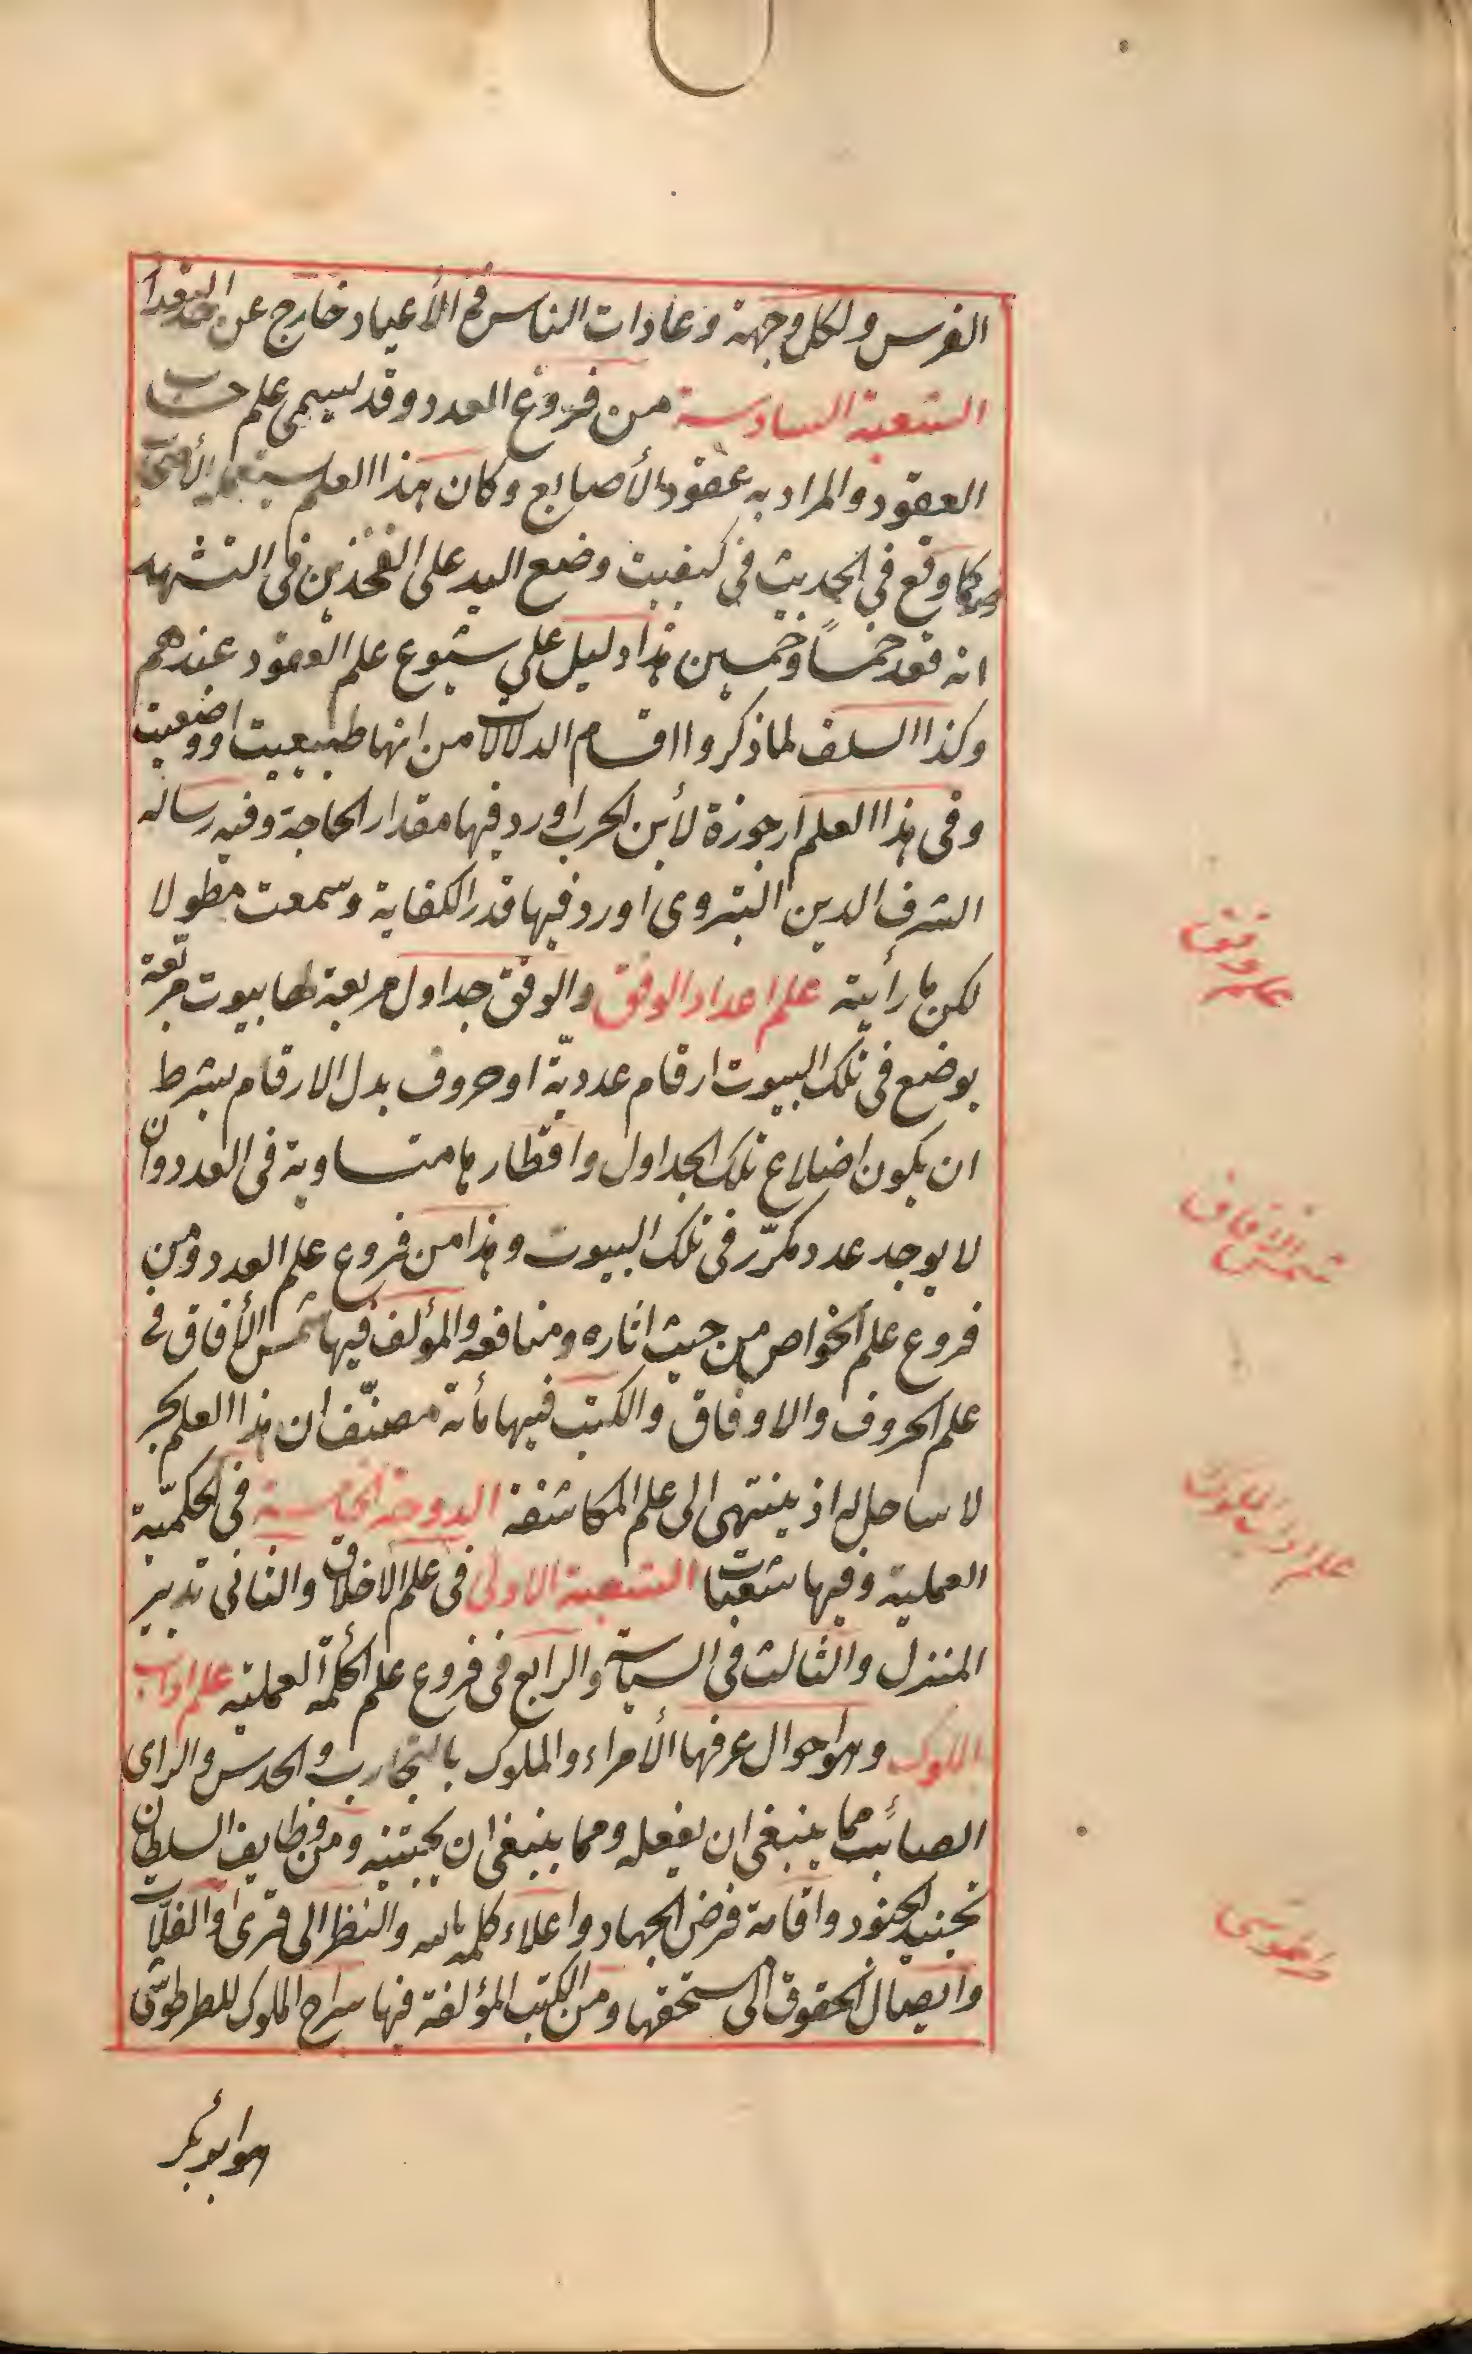 الفرس ولكل وجهة وعادات الناس فى الأعياد خارج عن حد التعداد
الشعبة السادسة من فروع العدد وقد يسمى علم حساب
العقود والمراد به عقود الأصابع وكان هذا العلم يستعمله
كما وقع فى الحديث فى كيفيت وضع اليد على الفخذين فى التشهد
انه عقد خمساً وخمسين هذا دليل على شيوع علم العقود عندهم
وكذا السلف لما ذكروا اقسام الدلالات من انها طبيعيت او وضعيت
وفى هذا العلم ارجوزة لأبن الحرب اورد فيها مقدار الحاجة وفيه رسالة
الشرف الدين اليزدى اورد فيها قدر الكفاية وسمعت مطولا
لكن ما رأيته علم اعداد الوفق والوفق جداول مربعة لها بيوت مربعة
يوضع فى تلك البيوت ارقام عدديّة او حروف بدل الارقام بشرط
ان يكون اضلاع تلك الجداول واقطارها متساوية فى العدد وان
لا يوجد عدد مكرّر فى تلك البيوت وهذا من فروع علم العدد ومن
فروع علم الخواص من حيث اثاره ومنافعه والمؤلف فيها شمس الأفاق فى
علم الحروف والاوفاق والكتب فيها مأتة مصنّف ان هذا العلم بحر
لا ساحل له اذ ينتهى الى علم المكاشفة الدوحة الخامسة فى الحكميّة
العملية وفيها شعبات الشعبة الاولى فى علم الاخلاق والثانى تدبير
المنزل والثالث فى السياسة والرابع فى فروع علم الحكمة العملية علم اداب
الملوك وهو احوال عرفها الأمراء والملوك بالتجارب والحدس والراى
الصائب مما ينبغى ان يفعله ومما ينبغى ان يجتنبه ومن وظايف السلطان
تجنيد الجنود واقامة فرض الجهاد واعلاء كلمة الله والنظر الى قرى والفلات
وايصال الحقوق الى مستحقها ومن الكتب المؤلفة فيها سراج الملوك للطرطوشى
هو ابو بكر
علم وفق
شمس الافاق
علم اداب الملوك